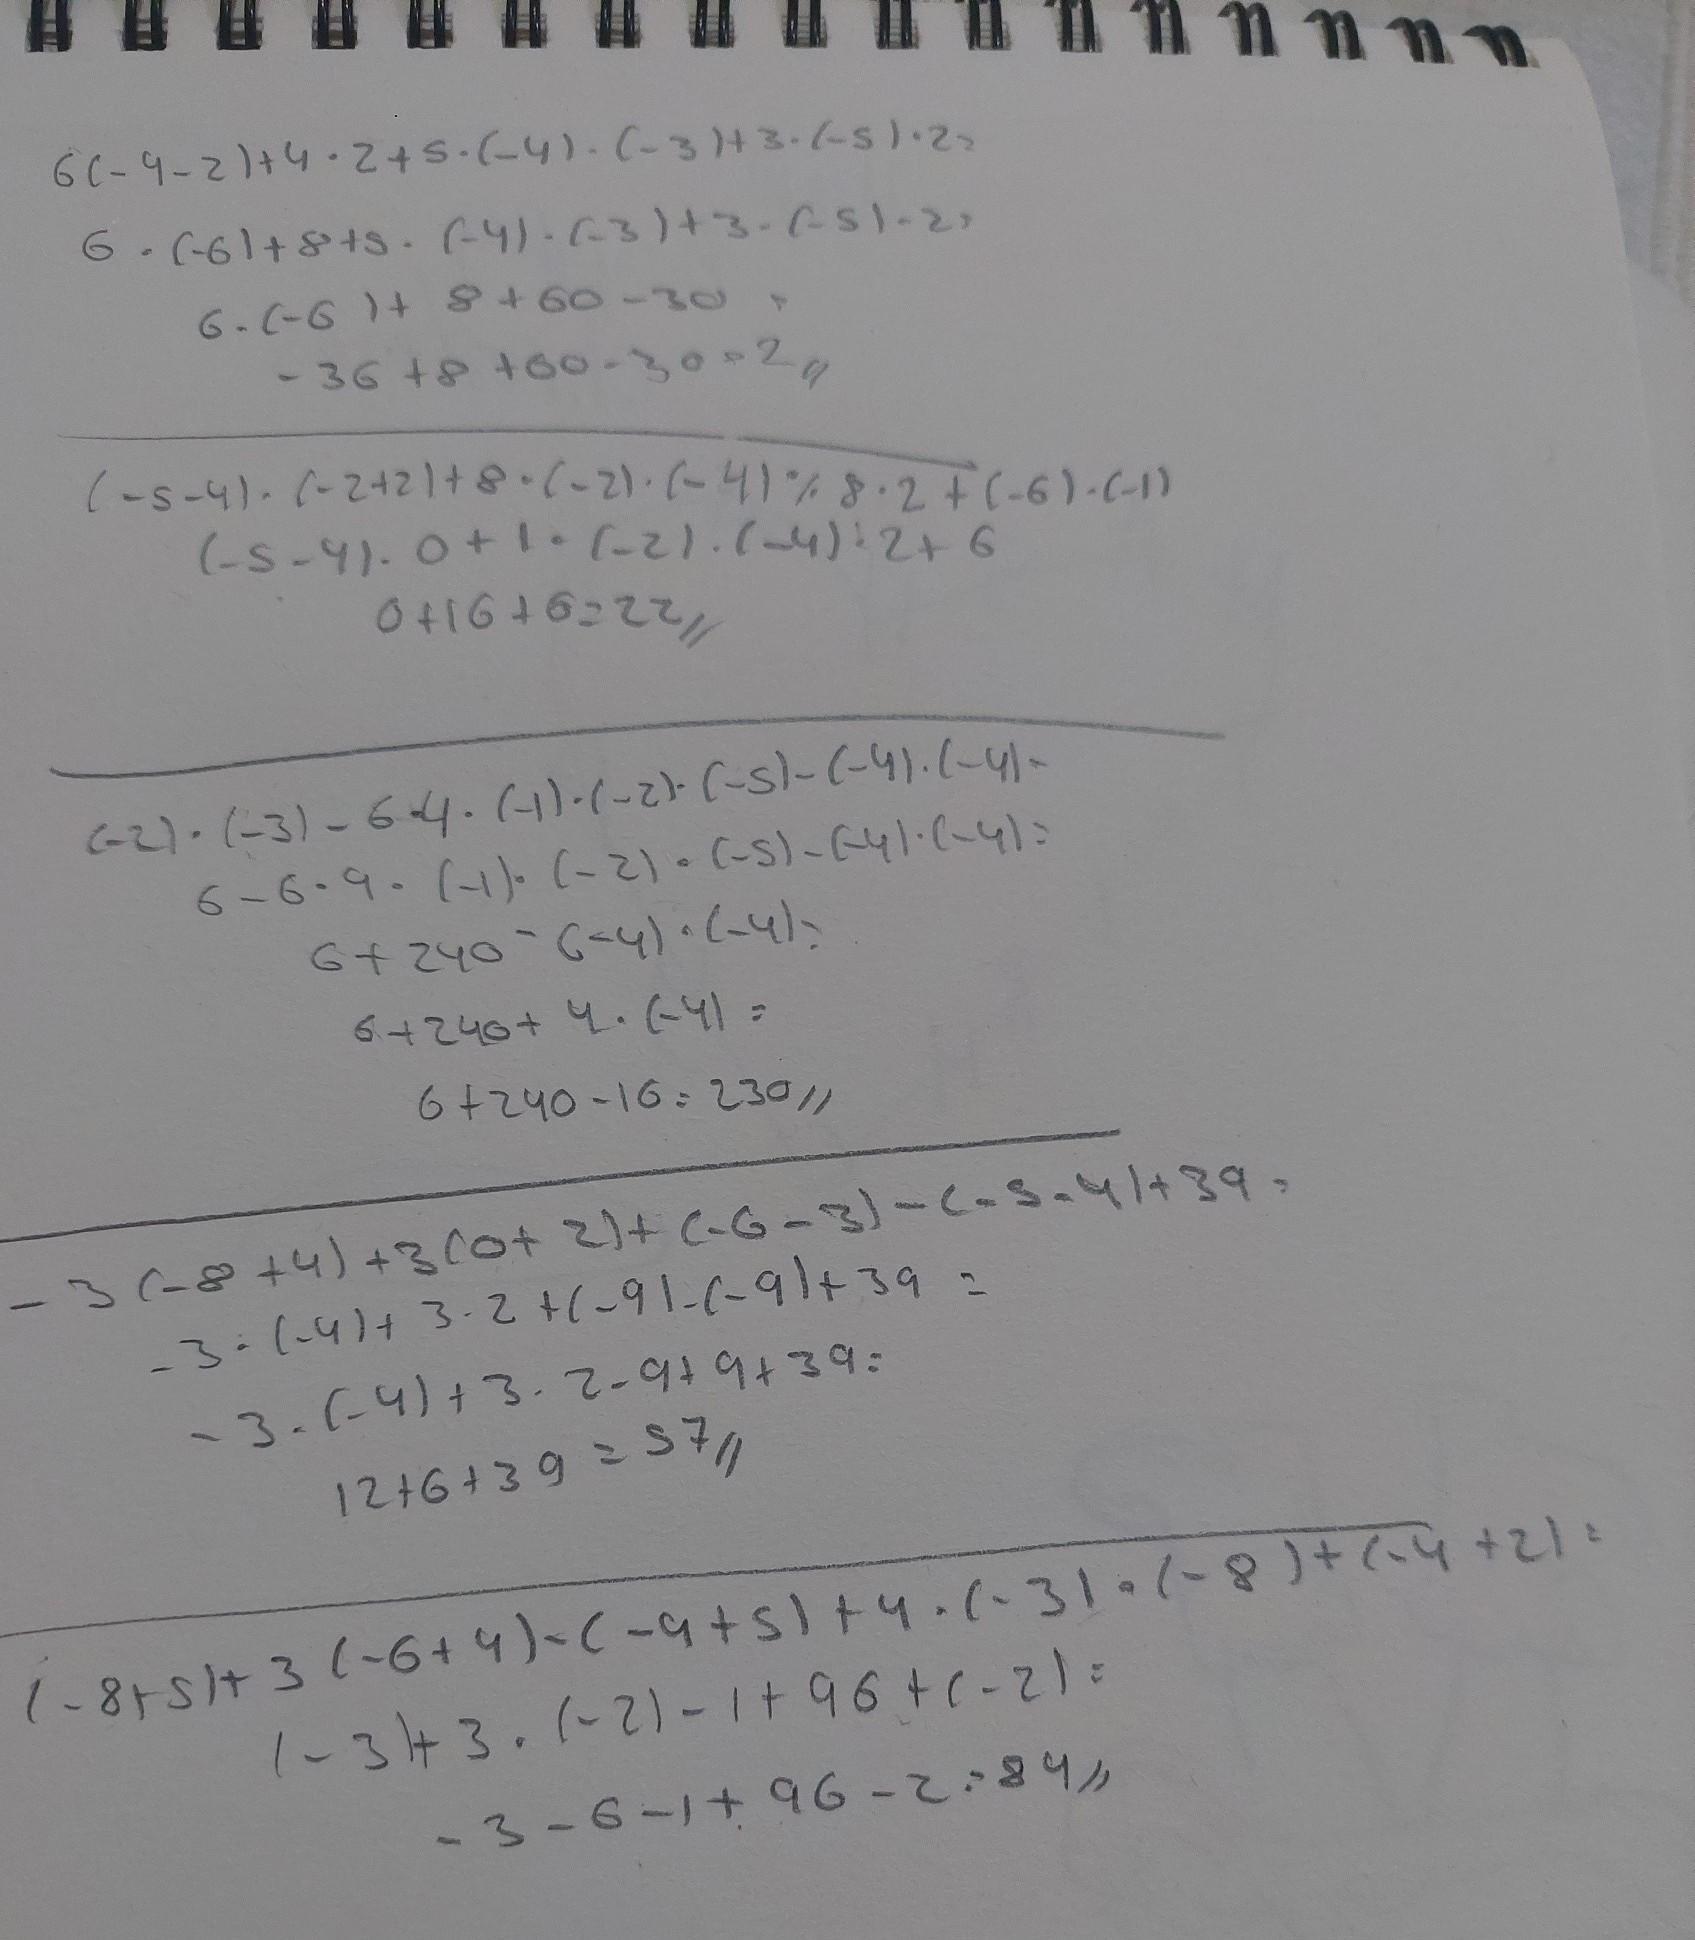 6(-4-2)+4·2+5·(-4)·(-3)+3·(-5)·2=
6·(-6)+8+5·(-4)·(-3)+3·(-5)·2=
6·(-6)+8+60-30=
-36+8+60-30=2//
(-5-4)·(-2+2)+8·(-2)·(-4)÷8·2+(-6)·(-1)
(-5-4)·0+1·(-2)·(-4)·2+6
0+16+6=22//
(-2)·(-3)-6·4·(-1)·(-2)·(-5)-(-4)·(-4)=
6-6·4·(-1)·(-2)·(-5)-(-4)·(-4)=
6+240-(-4)·(-4)=
6+240+4·(-4)=
6+240-16=230//
-3(-8+4)+3(0+2)+(-6-3)-(-5-4)+39=
-3·(-4)+3·2+(-9)-(-9)+39=
-3·(-4)+3·2-9+9+39=
12+6+39=57//
(-8+5)+3(-6+4)-(-4+5)+4·(-3)·(-8)+(-4+2)=
(-3)+3·(-2)-1+96+(-2)=
-3-6-1+96-2=84//